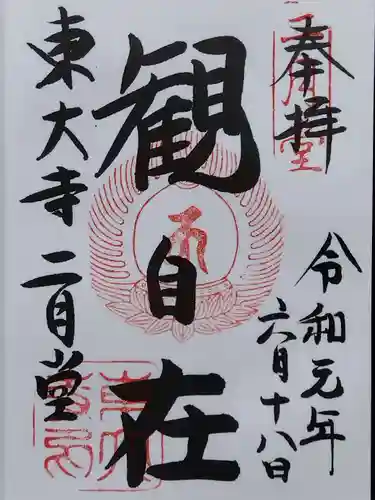 奉拝
令和元年
六月十八日
観自在
東大寺 二月堂